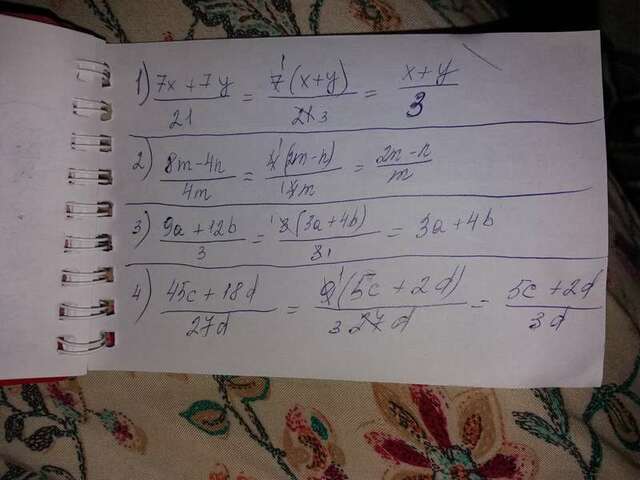 1) (7x+7y)/21 = 7(x+y)/21 3 = (x+y)/3
2) (8m-4n)/4m = 4(2m-n)/4m = (2m-n)/m
3) (9a+12b)/3 = 3(3a+4b)/3 = 3a+4b
4) (45c+18d)/27d = 9(5c+2d)/3 27d = (5c+2d)/3d